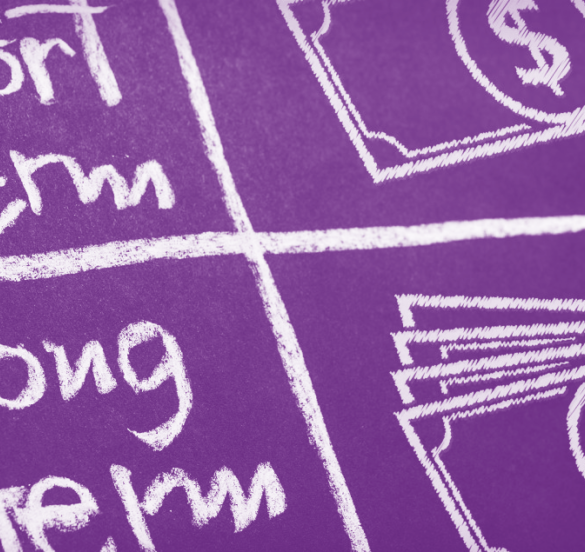 ort
erm
$
ong
erm